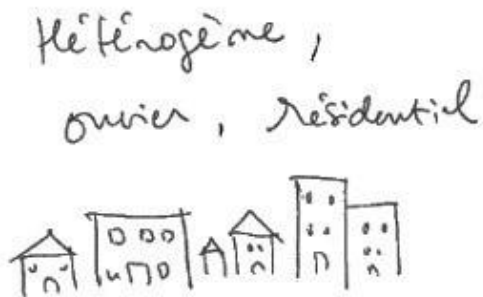 Hétérogène,
ouvrier, résidentiel